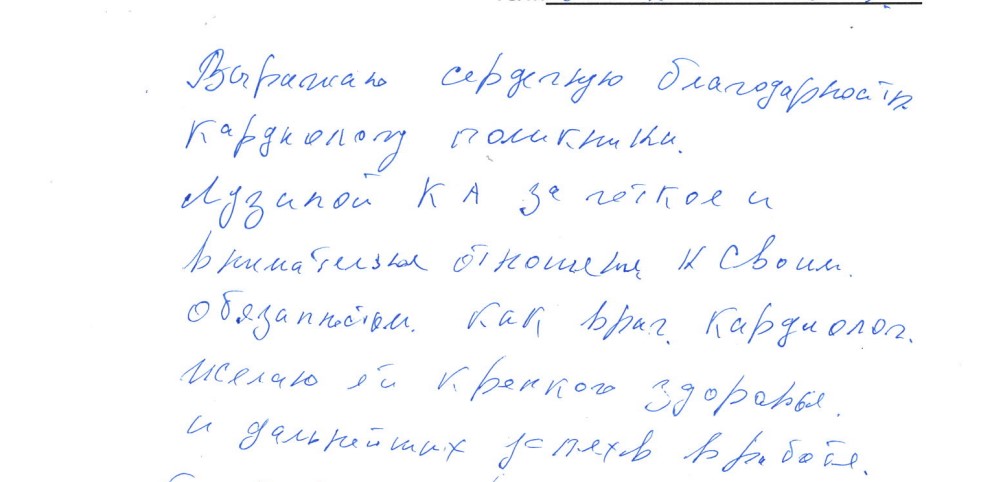 Выражаю сердечную благодарность
кардиологу поликники.
Лузиной К А за чёткое и
внимательное отношение к своим.
обязанностям. как врач. кардиолог.
желаю ей крепкого здоровья.
и дальнейших успехов в работе.